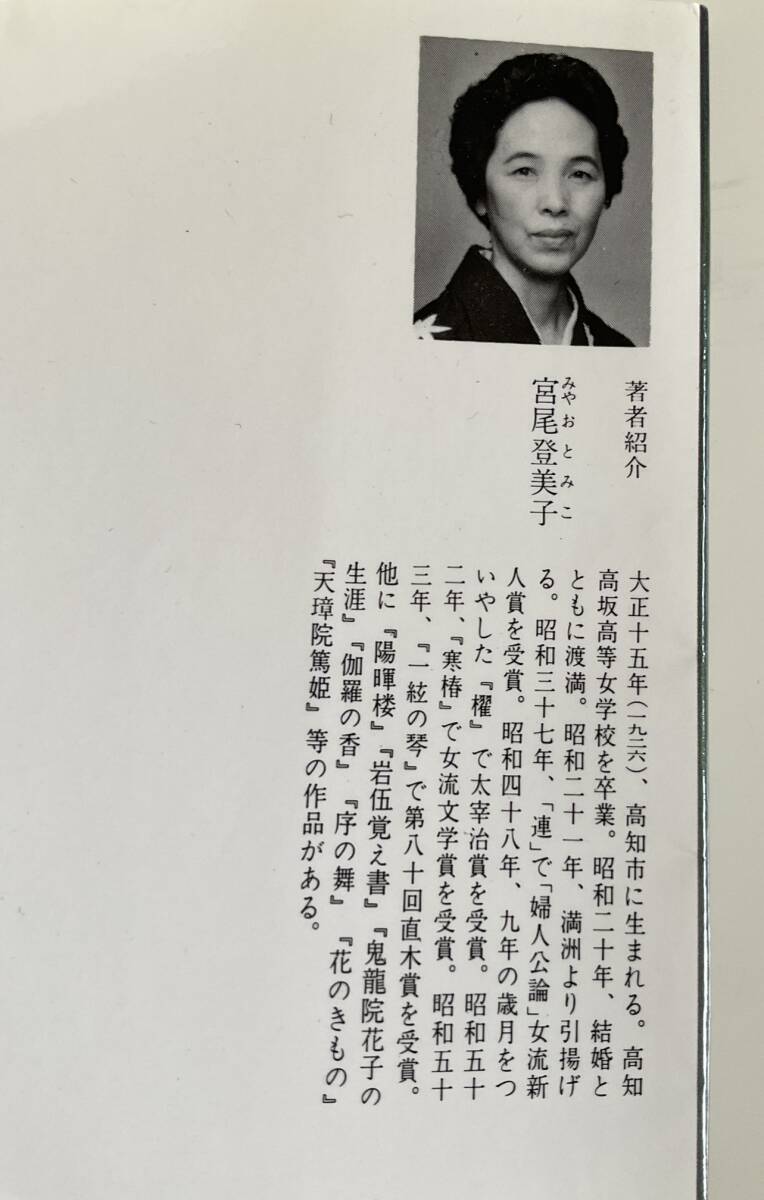 著者紹介
みやおとみこ
宮尾登美子
大正十五年(一九二六)、高知市に生まれる。高知
高坂高等女学校を卒業。昭和二十年、結婚と
ともに渡満。昭和二十一年、満洲より引揚げ
る。昭和三十七年、「連」で「婦人公論」女流新
人賞を受賞。昭和四十八年、九年の歳月をつ
いやした『櫂』で太宰治賞を受賞。昭和五十
二年、『寒椿』で女流文学賞を受賞。昭和五十
三年、『一絃の琴』で第八十回直木賞を受賞。
他に『陽暉楼』『岩伍覚え書』『鬼龍院花子の
生涯』『伽羅の香』『序の舞』『花のきもの』
『天璋院篤姫』等の作品がある。